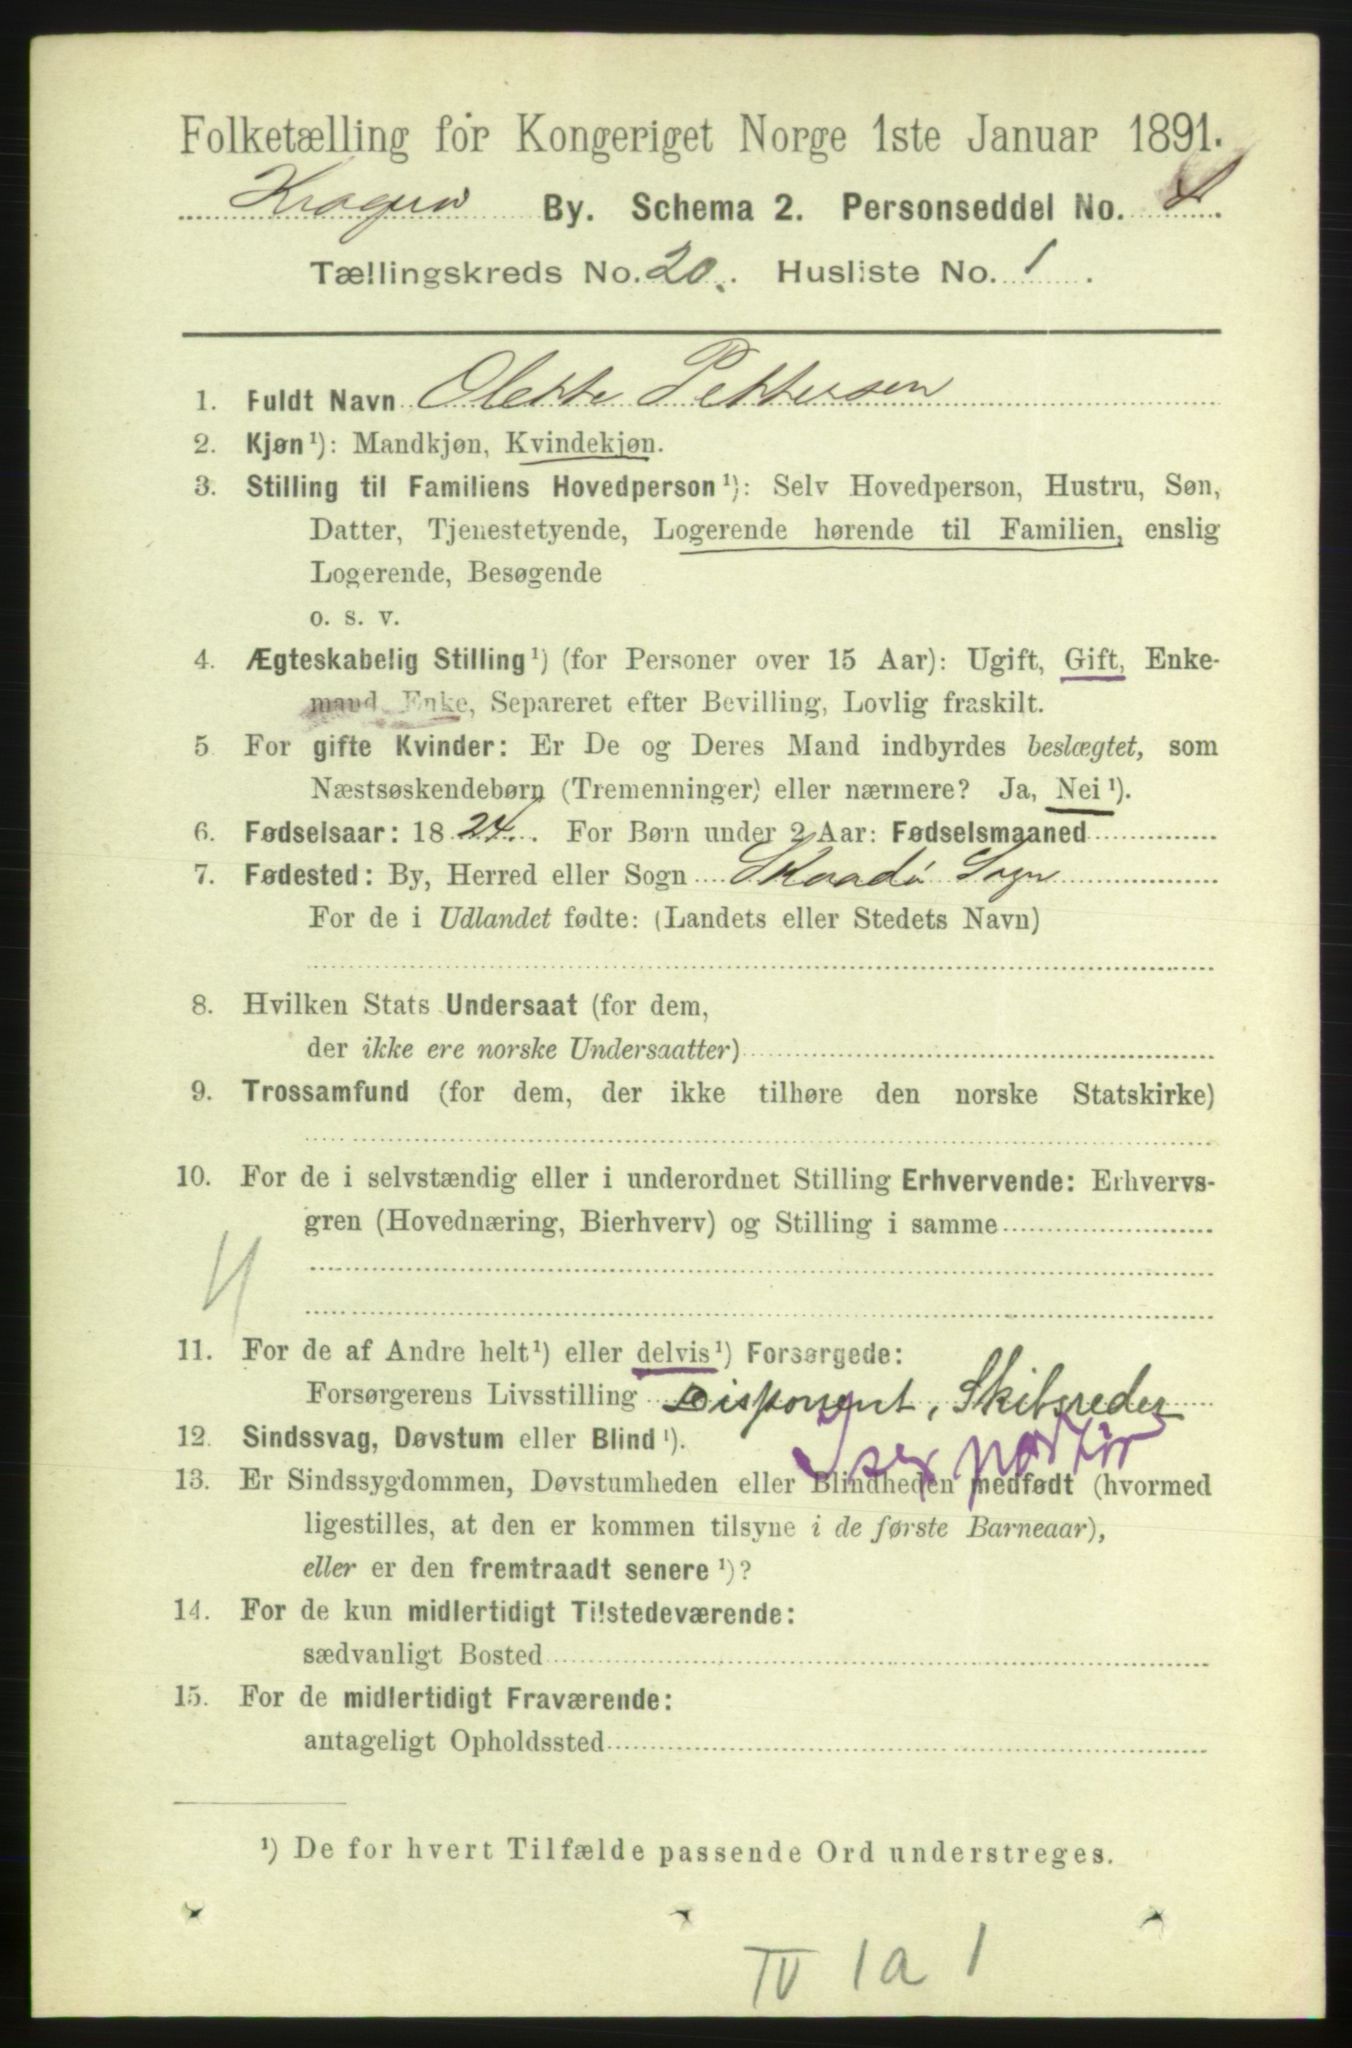 Folketælling for Kongeriget Norge 1ste Januar 1891.
Kragerø By. Schema 2. Personseddel No.
Tællingskreds No. 20. Husliste No. 1.
1. Fuldt Navn Olette Pettersen
2. Kjøn¹): Mandkjøn, Kvindekjøn.
3. Stilling til Familiens Hovedperson¹): Selv Hovedperson, Hustru, Søn,
Datter, Tjenestetyende, Logerende hørende til Familien, enslig
Logerende, Besøgende
o. s. v.
4. Ægteskabelig Stilling¹) (for Personer over 15 Aar): Ugift, Gift, Enke-
mand, Enke, Separeret efter Bevilling, Lovlig fraskilt.
5 For gifte Kvinder: Er De og Deres Mand indbyrdes beslægtet, som
Næstsøskendebørn (Tremenninger) eller nærmere? Ja, Nei¹).
6. Fødselsaar: 1824. For Børn under 2 Aar: Fødselsmaaned
7. Fødested: By, Herred eller Sogn Skaadø Sogn
For de i Udlandet fødte: (Landets eller Stedets Navn)
8. Hvilken Stats Undersaat (for dem,
der ikke ere norske Undersaatter)
9. Trossamfund (for dem, der ikke tilhøre den norske Statskirke)
10. For de i selvstændig eller i underordnet Stilling Erhvervende: Erhvervs-
gren (Hovednæring, Bierhverv) og Stilling i samme
11. For de af Andre helt¹) eller delvis¹) Forsørgede:
Forsørgerens Livsstilling Disponent, Skibsreder
12. Sindssvag, Døvstum eller Blind¹).
13. Er Sindssygdommen, Døvstumheden eller Blindheden medfødt (hvormed
ligestilles, at den er kommen tilsyne i de første Barneaar),
eller er den fremtraadt senere¹)?
14. For de kun midlertidigt Tilstedeværende:
sædvanligt Bosted
15. For de midlertidigt Fraværende:
antageligt Opholdssted
¹) De for hvert Tilfælde passende Ord understreges.
IV 1a 1